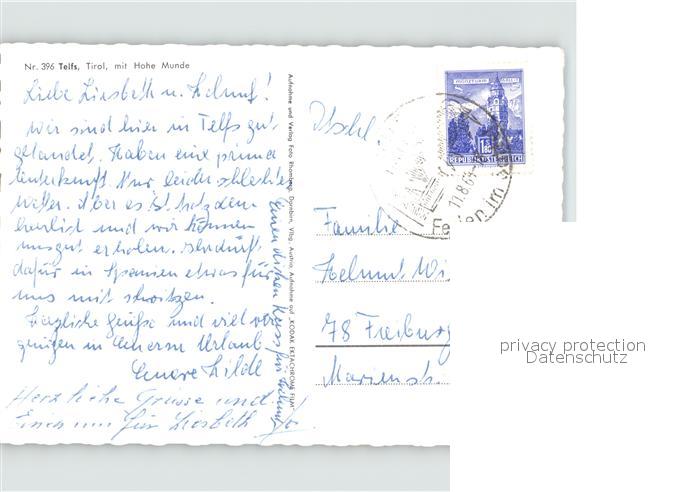 Nr. 396 Telfs, Tirol, mit Hohe Munde
Liebe Liesbeth u. Helmut!
Wir sind hier in Telfs gut
gelandet. Haben eine prima
Unterkunft. Nur leider schlechtes
Wetter. Aber es ist trotzdem
herrlich und wir können
uns gut erholen. Ihr dürft
dafür in Spanien etwas für
uns mit schwitzen.
Herzliche Grüße und viel Ver
gnügen in Eurem Urlaub
Eure Hilde
Herzliche Grüsse und
einen für Liesbeth
Einen dicken Kuss für Helmut
Aufnahme und Verlag Foto Rhomberg, Dornbirn, Vlbg., Austria Aufnahme auf „KODAK EKTACHROME FILM"
MÜNZTURM
REPUBLIK ÖSTERREICH
11.8.6
im
Familie
Helmut Wi
78 Freiburg
Marienstr.
privacy protection
Datenschutz